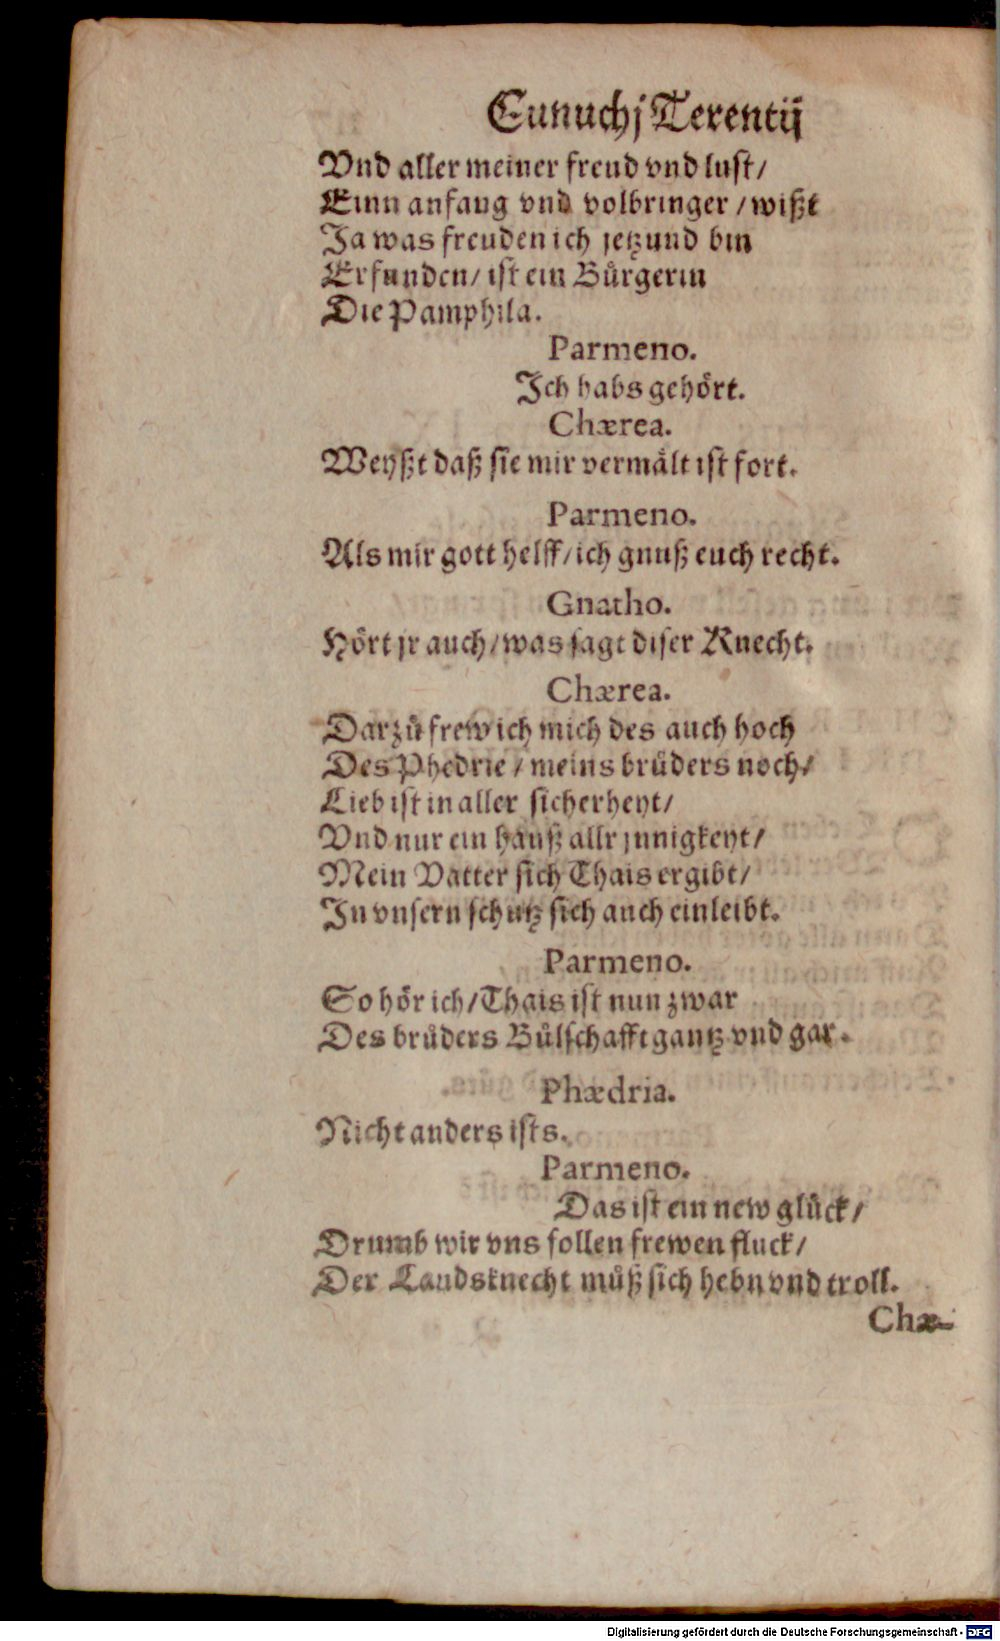 Eunuchj Terentij
Vnd aller meiner freud vnd lust/
Einn anfang vnd volbringer / wißt
Ja was freuden ich jetzund bin
Erfunden/ ist ein Bůrgerin
Die Pamphila.
Parmeno.
Ich habs gehört.
Chærea.
Weyßt daß sie mir vermålt ist fort.
Parmeno.
Als mir gott helff/ich gnuß euch recht.
Gnatho.
Hört jr auch/was sagt diser Knecht.
Chærea.
Darzů frew ich mich des auch hoch
Des Phedrie / meins brůders noch/
Lieb ist in aller sicherheyt/
Vnd nur ein hauß allr jnnigkeyt/
Mein Vatter sich Thais ergibt/
In vnsern schutz sich auch einleibt.
Parmeno.
So hör ich/Thais ist nun zwar
Des brůders Bůlschafft gantz vnd gar.
Phædria.
Nicht anders ists.
Parmeno.
Das ist ein new glůck/
Drumb wir vns sollen frewen fluck/
Der Landsknecht můß sich hebn vnd troll.
Chæ-
Digitalisierung gefördert durch die Deutsche Forschungsgemeinschaft - DFG